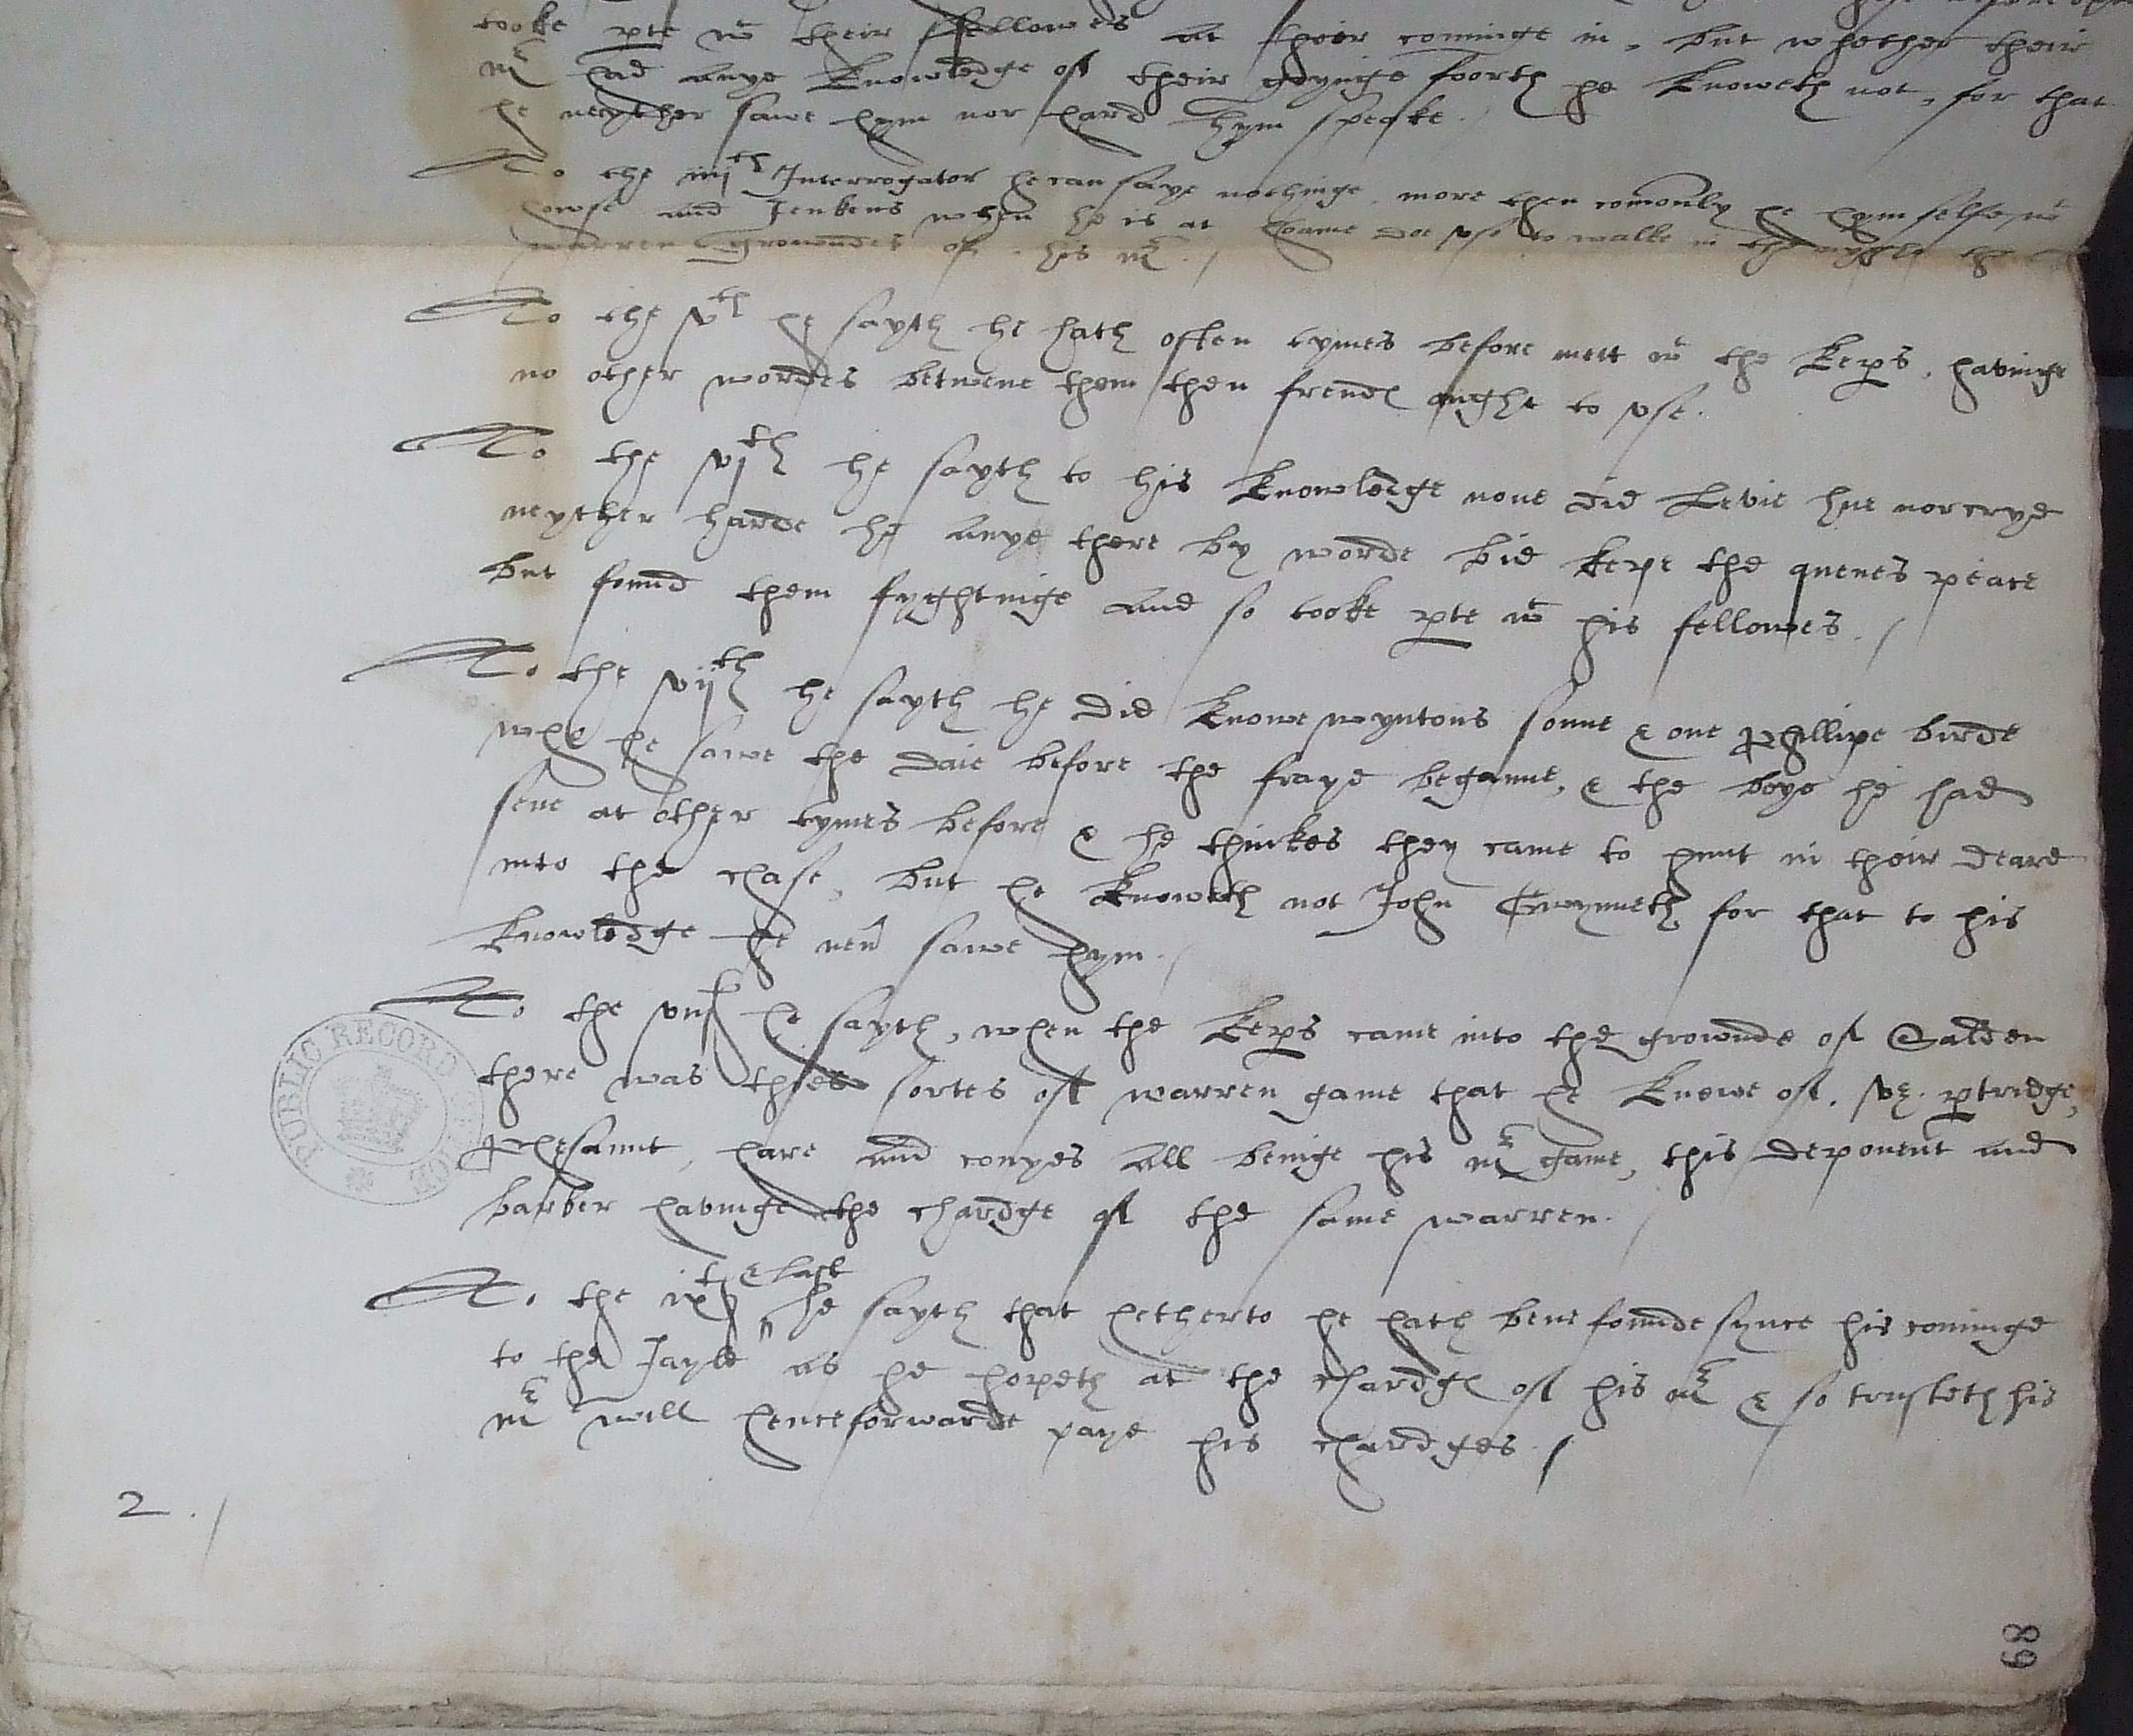 tooke pte wth their ffellowes at their cominge in, but whether their
mr had anye knowledge of their goynge foorth he knoweth not, for that
he neyther sawe hym nor hard hym speake.
To the iiijth Interrogator he can saye nothinge more then comonly he hym selfe, wth
howse and Jenkens when he is at home doe vse to walke in the nyght the
warren growndes of his mr./
To the vth he sayth he hath often tymes before mett wth the keps, havinge
no other wordes betwene them then frendes myght to vse.
To the vjth he sayth to his knowledge none did Levie hue nor crye
neyther harde he anye there by worde bid kepe the quenes peace
but found them fyghtinge and so tooke pte wth his fellowes./
To the vijth he sayth he did knowe wyntons sonne & one Phillipe birde
whom he sawe the daie before the fraye beganne, & the boye he had
sene at other tymes before & he thinkes they came to hunt in their deare
into the chase, but he knoweth not John Gwynneth for that to his
knowledge he neu sawe hym./
To the viijth he sayth, when the keps came into the grownde of Salden
there was thies sortes of warren game that he knewe of. vz. ptridge,
Phesannt, hare and conyes all beinge his mr game, this deponent and
barber havinge the chardge of the same warren./
To the ixth & last he sayth that hetherto he hath bene founde synce his cominge
to the Jayle as he hopeth at the chardges of his mr & so trusteth his
mr will henceforwarde paye his chardges./
2./
PUBLIC RECORD OFFICE
68